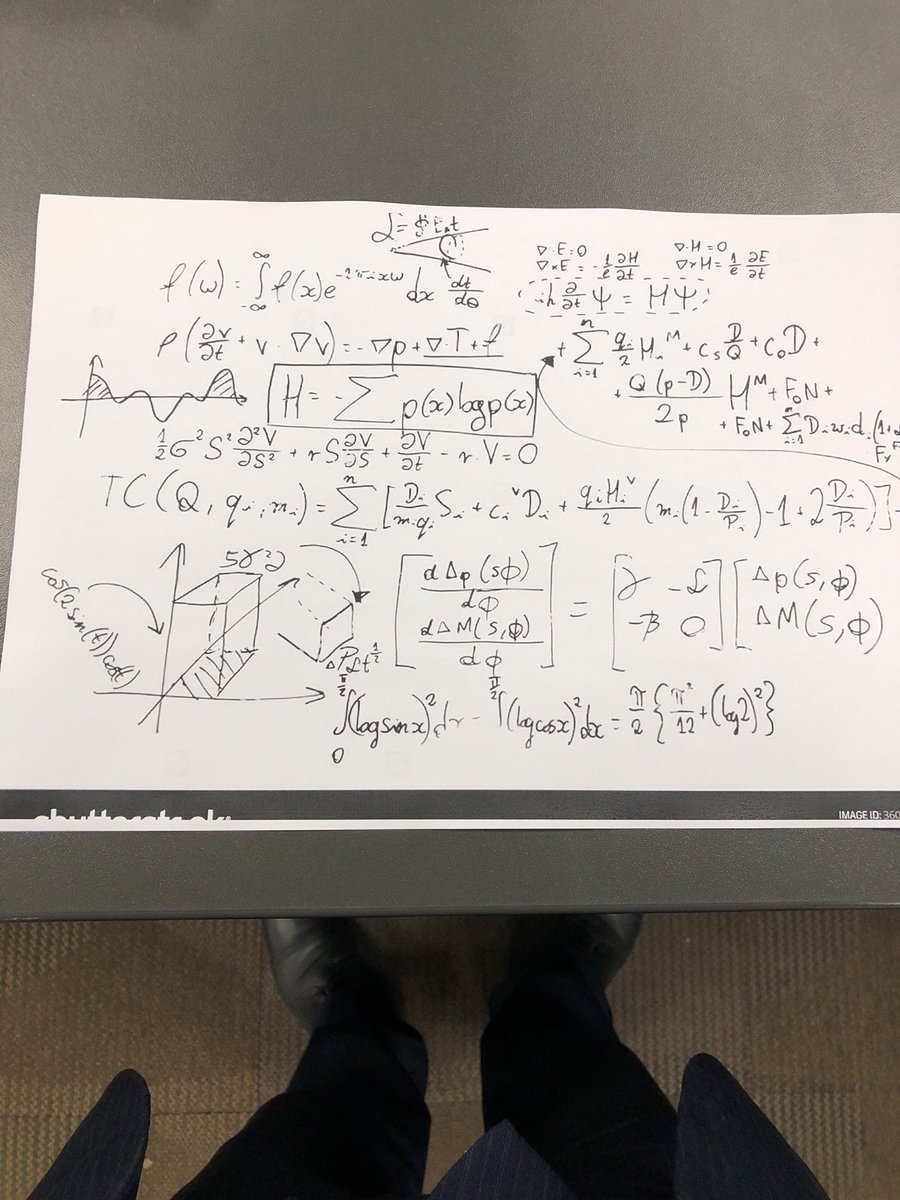 ℒ = $ E.t
f(ω) = ∫_{-∞}^{∞} f(x)e^{-2πixω} dx
dt/dθ
∇·E=0 ∇·H=0
∇×E = -1/c ∂H/∂t ∇×H = 1/c ∂E/∂t
iħ ∂/∂t Ψ = HΨ
ρ(∂v/∂t + v·∇v) = -∇p + ∇·T + f
+ Σ_{i=1}^{n} q_i/2 H_i^M + c_s D/Q + c_0 D +
+ Q(p-D)/2p H^M + F_0N +
+ F_0N + Σ_{i=1}^{n} D_i w_i d_i (1+
H = -Σ p(x) log p(x)
1/2 σ² S² ∂²V/∂S² + r S ∂V/∂S + ∂V/∂t - r·V = 0
TC(Q, q_i, m_i) = Σ_{i=1}^{n} [D_i/(m_i q_i) S_i + c_i^v D_i + q_i H_i^v/2 (m_i(1 - D_i/P_i) - 1 + 2 D_i/P_i)]
cos(2sin(t))cos(t)
5γ²∂
ΔPℒt^{1/2}
[dΔp(sϕ)/dϕ ; dΔM(s,ϕ)/dϕ] = [γ -ℒ ; -β 0] [Δp(s,ϕ) ; ΔM(s,ϕ)]
∫_0^{π/2} (log sin x)² dx - ∫^{π/2} (log cos x)² dx = π/2 {π²/12 + (log 2)²}
shutterstock
IMAGE ID: 360